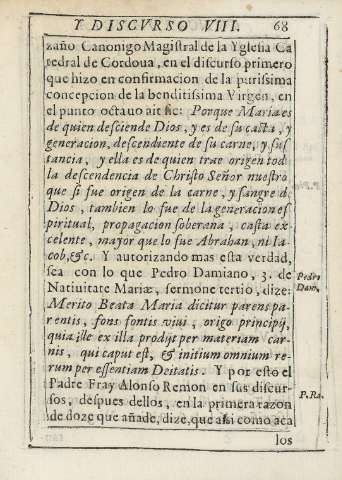 Y DISCVRSO VIII. 68
zaño Canonigo Magistral de la Yglesia Ca
tedral de Cordoua, en el discurso primero
que hizo en confirmacion de la purissima
concepcion de la benditissima Virgen, en
el punto octauo ait sic: Porque Maria es
de quien desciende Dios, y es de su casta, y
generacion, descendiente de su carne, y sus
tancia, y ella es de quien trae origen tod
la descendencia de Christo Señor nuestro
que si fue origen de la carne, y sangre de
Dios, tambien lo fue de la generacion es
piritual, propagacion soberana, casta ex
celente, mayor que lo fue Abrahan, ni Ia
cob, &c. Y autorizando mas esta verdad,
sea con lo que Pedro Damiano, 3. de
Natiuitate Mariæ, sermone tertio, dize:
Merito Beata Maria dicitur parens pa
rentis, fons fontis viui, origo principij,
quia ille ex illa prodijt per materiam car
nis, qui caput est, & initium omnium re
rum per essentiam Deitatis. Y por esto el
Padre Fray Alonso Remon en sus discur
sos, despues dellos, en la primera razon
de doze que añade, dize, que assi como aca
los
Pedro
Dam.
P. Ra.